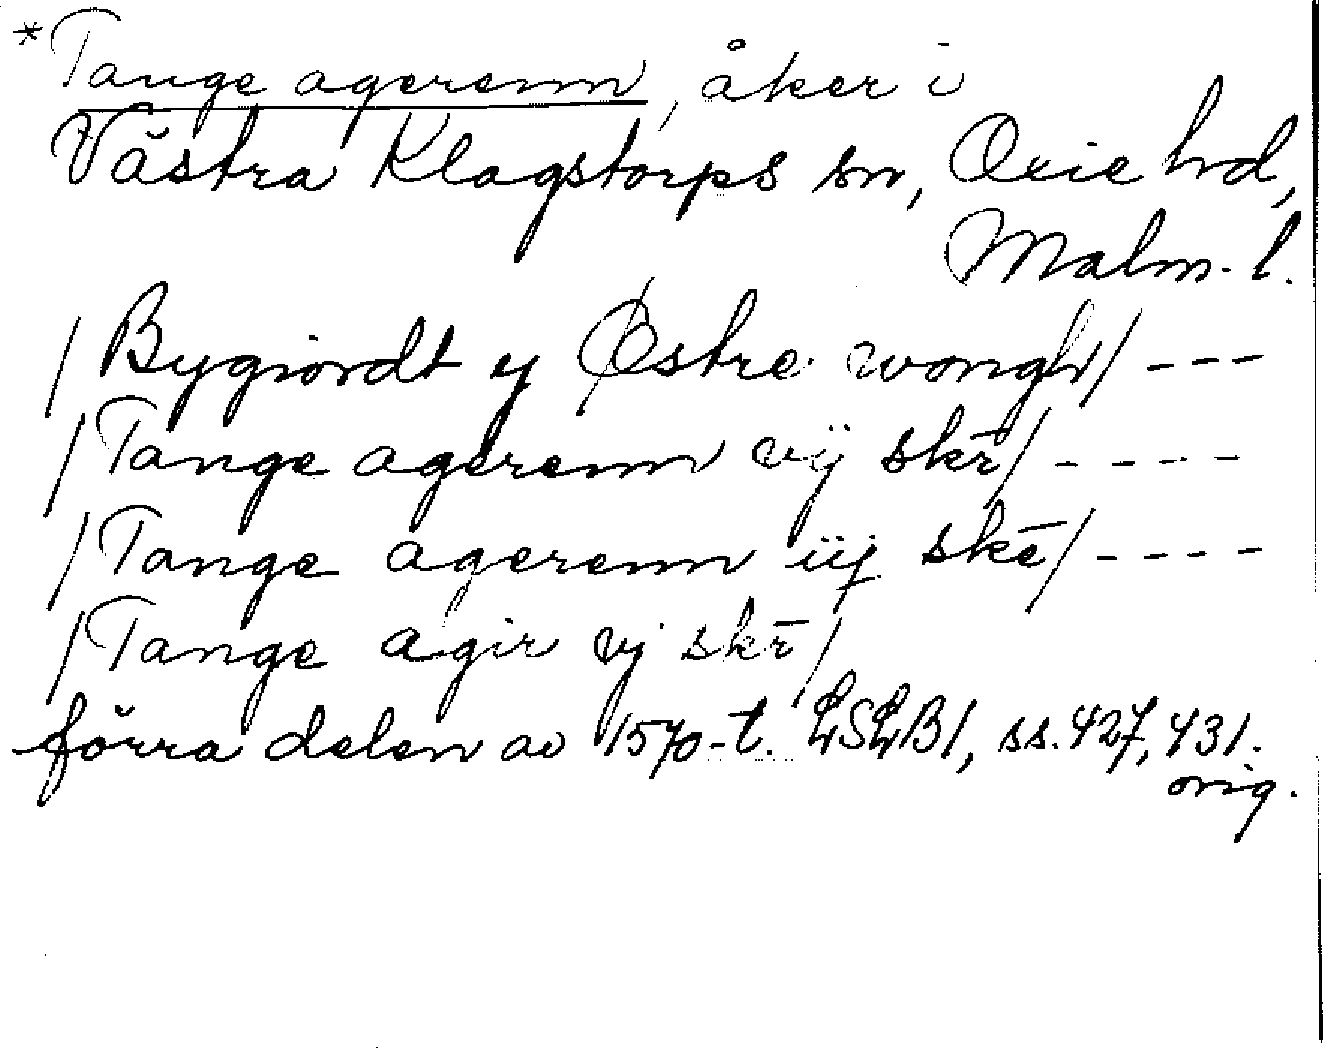 *Tange agerenn, åker i
Västra Klagstorps sn, Oxie hrd,
Malm. l.
/Bygiordt y Østre wongh/ ---
/Tange agerenn vij skr̄/ ----
/Tange agerenn iij skr̄/ ----
/Tange agir vj skr̄/
förra delen av 1570-t. LSLB1, ss. 427, 431.
orig.